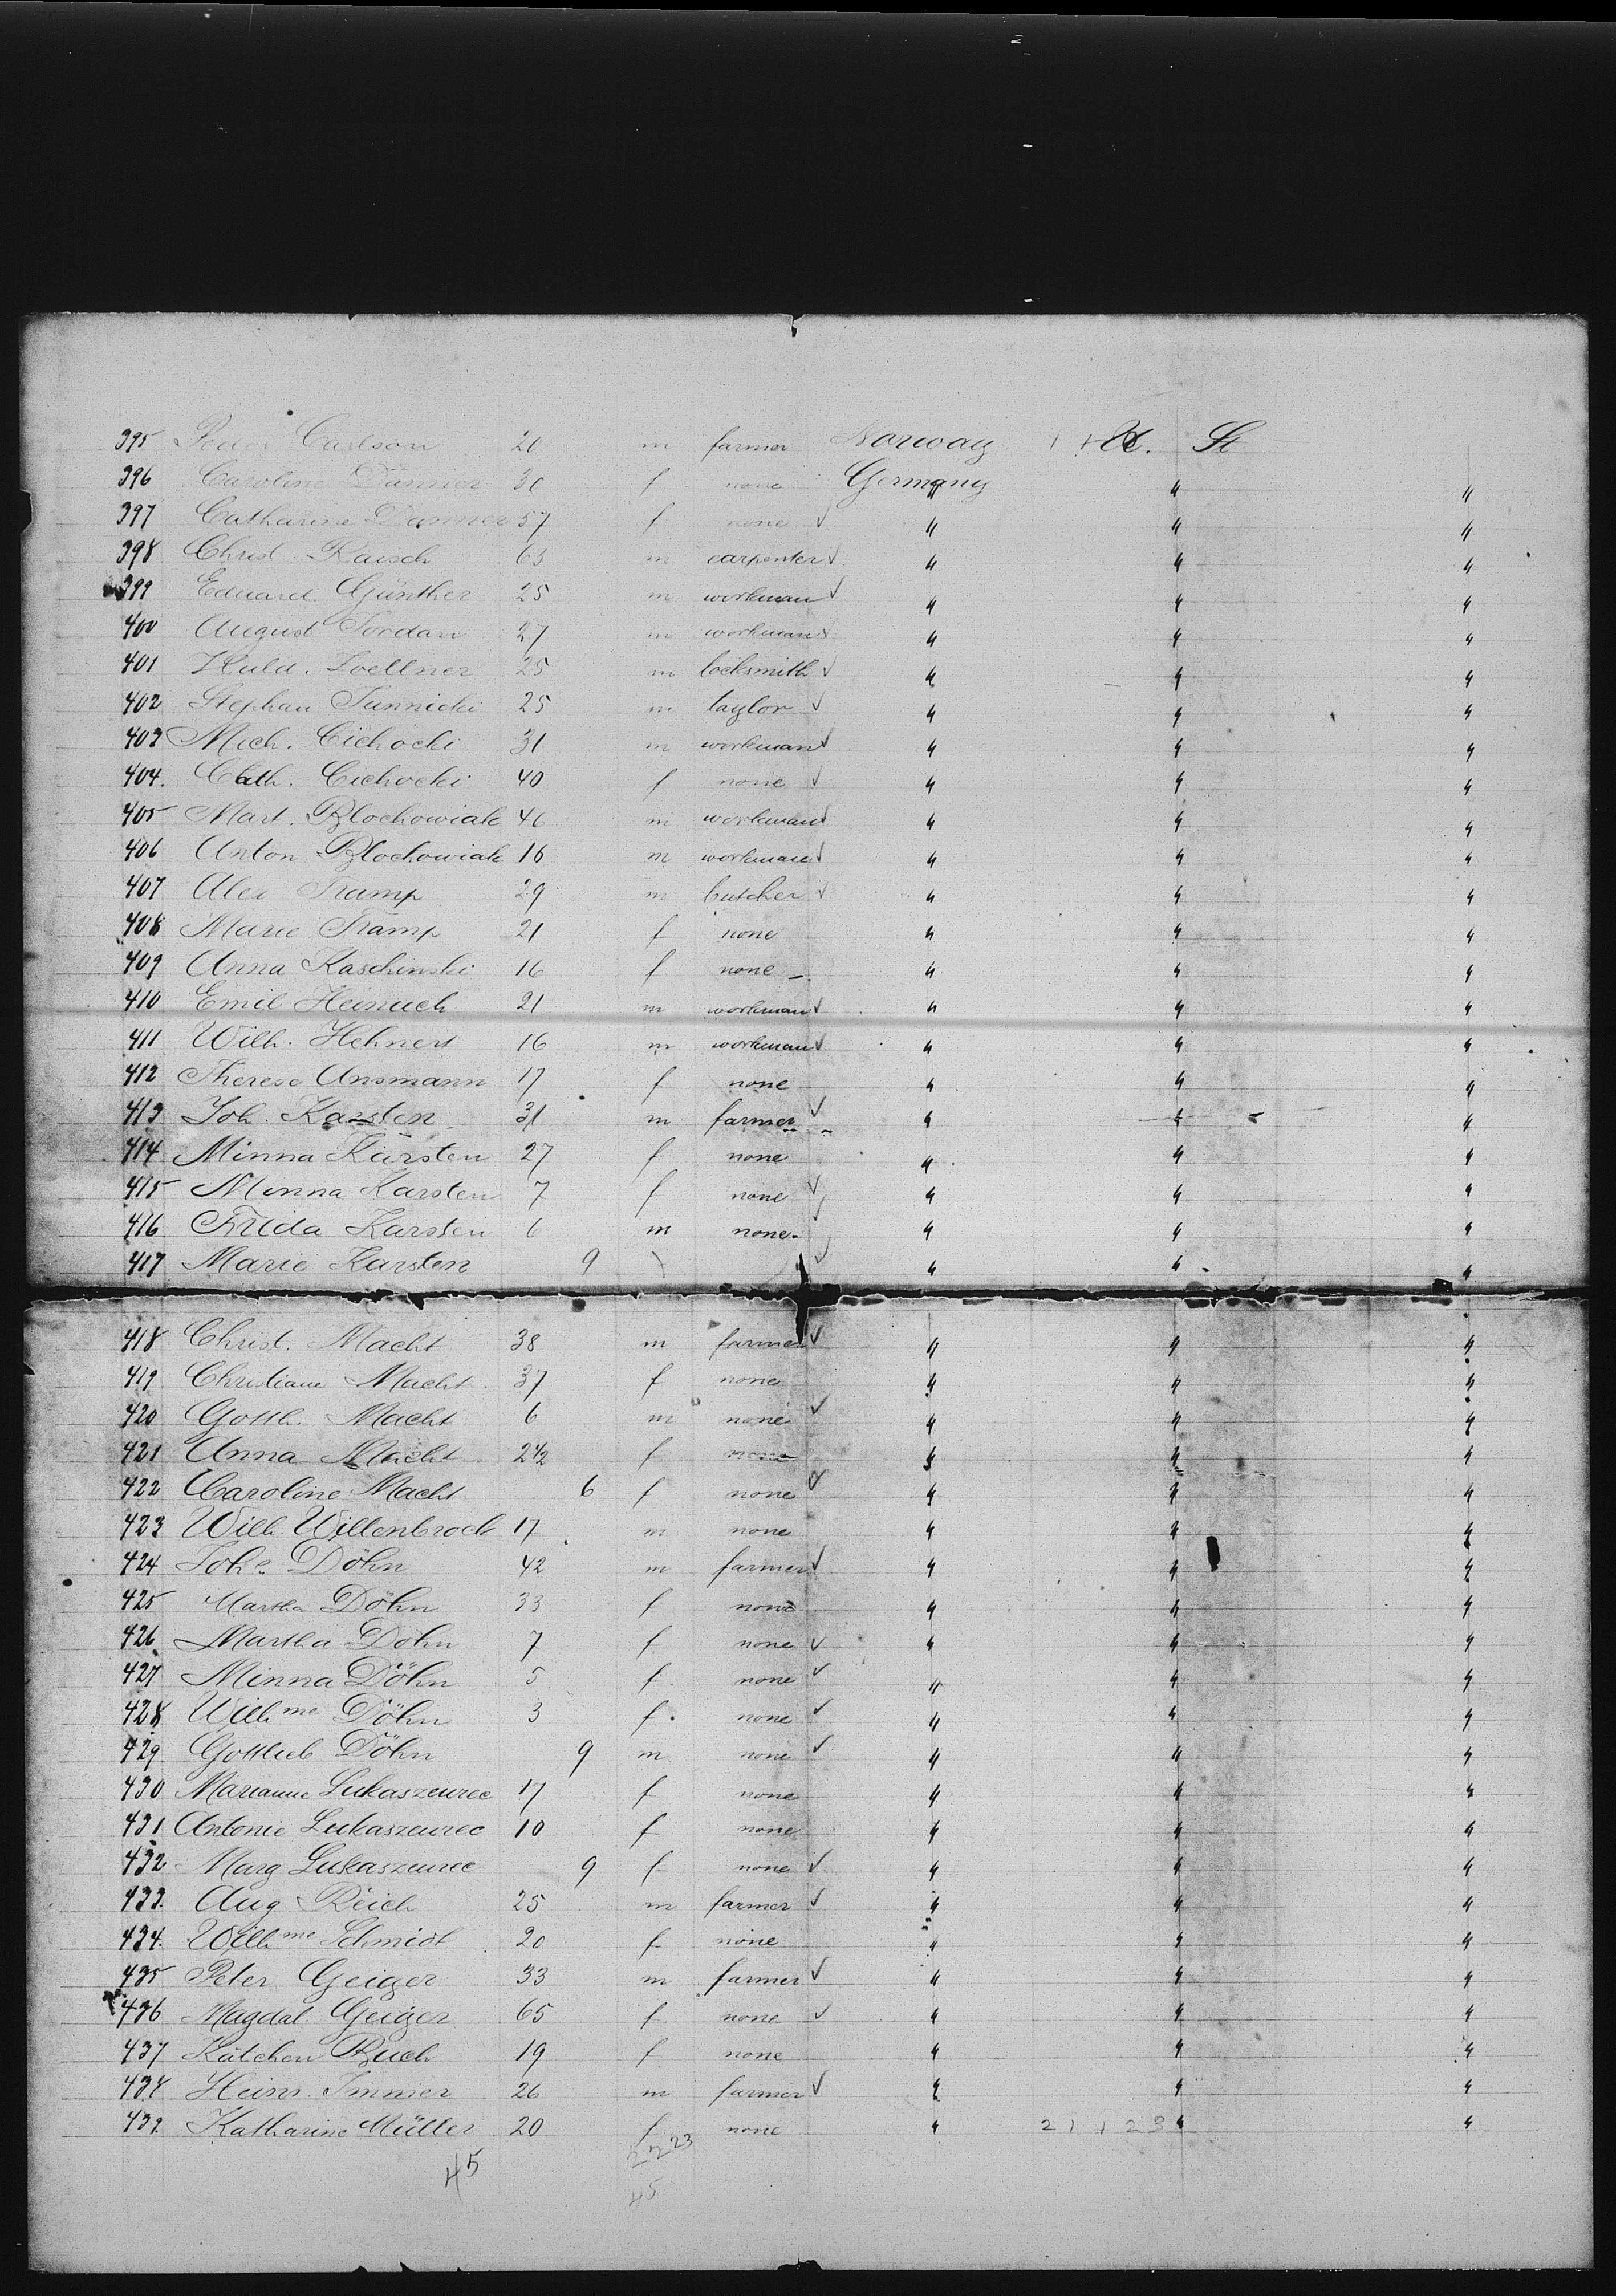 395 Peder Carlson 20 m farmer Norway U. St
396 Caroline Dänner 30 f none Germany " "
397 Catharine Danner 57 f none ✓ " " "
398 Christ. Rausch 63 m carpenter ✓ " " "
399 Eduard Günther 25 m workman ✓ " " "
400 August Jordan 27 m workman " " "
401 Huld. Zoellner 25 m locksmith ✓ " " "
402 Stephan Sunnicki 25 m taylor ✓ " " "
403 Mich. Cichocki 31 m workman ✓ " " "
404. Cath. Cichocki 40 f none ✓ " " "
405 Mart. Blochowiak 46 m workman ✓ " " "
406 Anton Blochowiak 16 m workman ✓ " " "
407 Alex Tramp 29 m butcher ✓ " " "
408 Marie Tramp 21 f none " " "
409 Anna Kaschinski 16 f none " " "
410 Emil Heinrich 21 m workman ✓ " " "
411 Wilh. Hehnert 16 m workman ✓ " " "
412 Therese Ansmann 17 f none " " "
413 Joh. Karsten 31 m farmer ✓ " " "
414 Minna Karsten 27 f none " " "
415 Minna Karsten 7 f none ✓ " " "
416 Frida Karsten 6 m none. ✓ " " "
417 Marie Karsten 9 \ ✓ " " "
418 Christ. Macht 38 m farmer ✓ " " "
419 Christiane Macht 37 f none " " "
420 Gottl. Macht 6 m none ✓ " " "
421 Anna Macht 2 1/2 f none " " "
422 Caroline Macht 6 f none ✓ " " "
423 Wilh. Willenbrock 17 m none " " "
424 Joh. Döhn 42 m farmer ✓ " " "
425 Martha Döhn 33 f none " " "
426 Martha Döhn 7 f none ✓ " " "
427 Minna Döhn 5 f none ✓ " " "
428 Wilhme Döhn 3 f. none ✓ " " "
429 Gottlieb Döhn 9 m none ✓ " " "
430 Marianne Lukaszewee 17 f none " " "
431 Antonie Lukaszewee 10 f none " " "
432 Marg Lukaszewee 9 f none ✓ " " "
433. Aug Reich 25 m farmer ✓ " " "
434. Wilhme Schmidt 20 f none " " "
435 Peter Geiger 33 m farmer ✓ " " "
436 Magdal. Geiger 65 f none ✓ " " "
437 Kätchen Buch 19 f none " " "
438 Heinr. Immer 26 m farmer ✓ " " "
439. Katharine Müller 20 f none " 21 + 23 " "
45 22 23
45